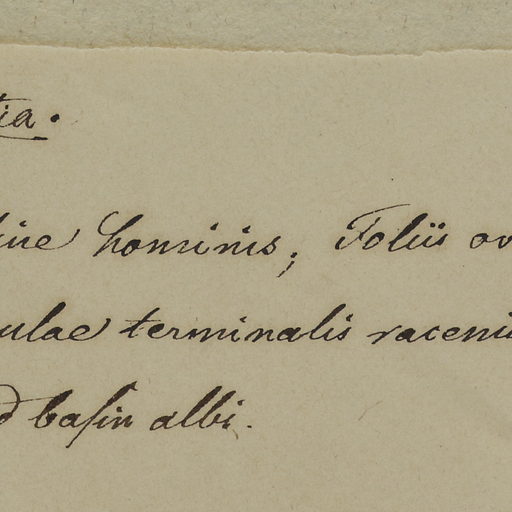 tia.
hominis; Foliis ov
ulae terminalis racemi
d baſin albi.